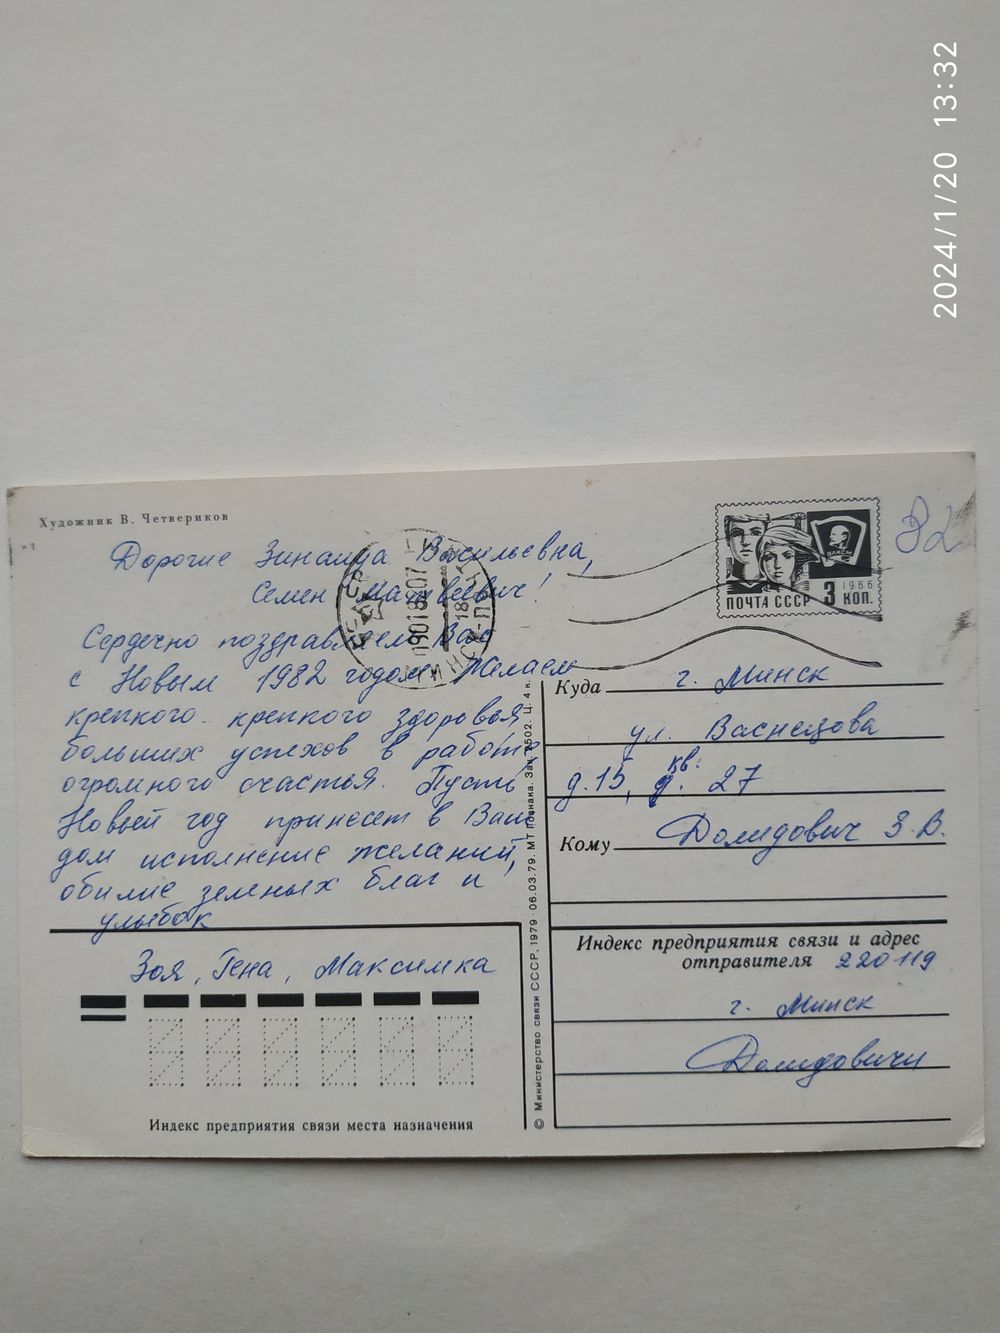 2024/1/20 13:32
Художник В. Четвериков
Дорогие Зинаида Васильевна,
Семен Матвеевич!
Сердечно поздравляем Вас
с Новым 1982 годом. Желаем
крепкого-крепкого здоровья,
больших успехов в работе,
огромного счастья. Пусть
Новый год принесет в Ваш
дом исполнение желаний,
обилие земных благ и
улыбок
Зоя, Гена, Максимка
Индекс предприятия связи места назначения
© Министерство связи СССР, 1979 06.03.79. МТ Гознака. Зак. 2502. Ц. 4 к.
ПОЧТА СССР 3 КОП.
1966
ВЛКСМ
82
Куда г. Минск
ул. Васнецова
д. 15, кв. 27
Кому Домидович З. В.
Индекс предприятия связи и адрес
отправителя 220119
г. Минск
Домидовичи